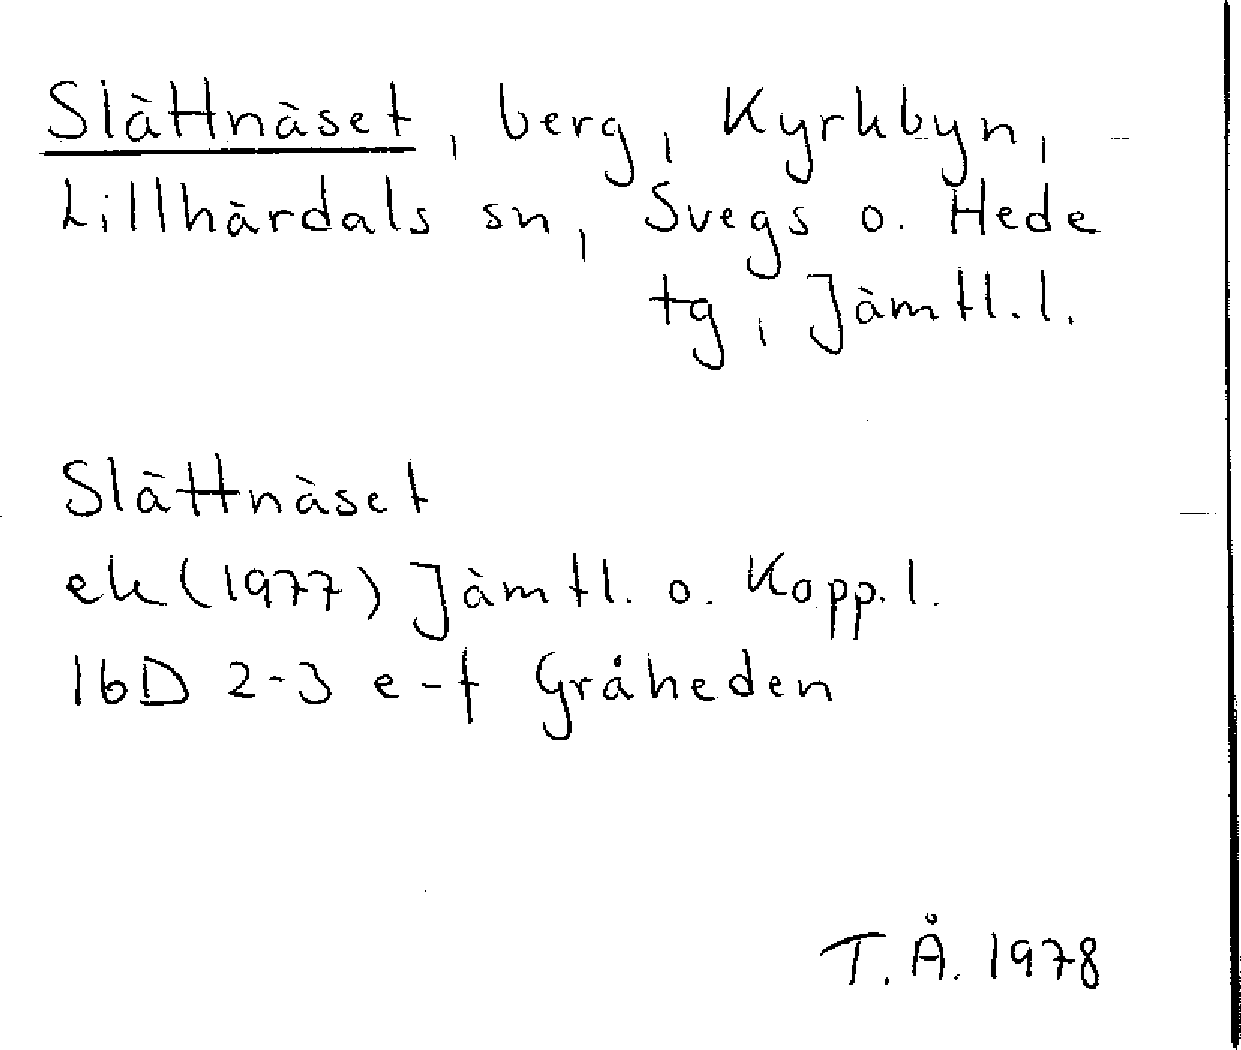 Slättnäset, berg, Kyrkbyn,
Lillhärdals sn, Svegs o. Hede
tg, Jämtl.l.
Slättnäset
ek (1977) Jämtl. o. Kopp.l.
16D 2-3 e-f Gråheden
T.Å. 1978